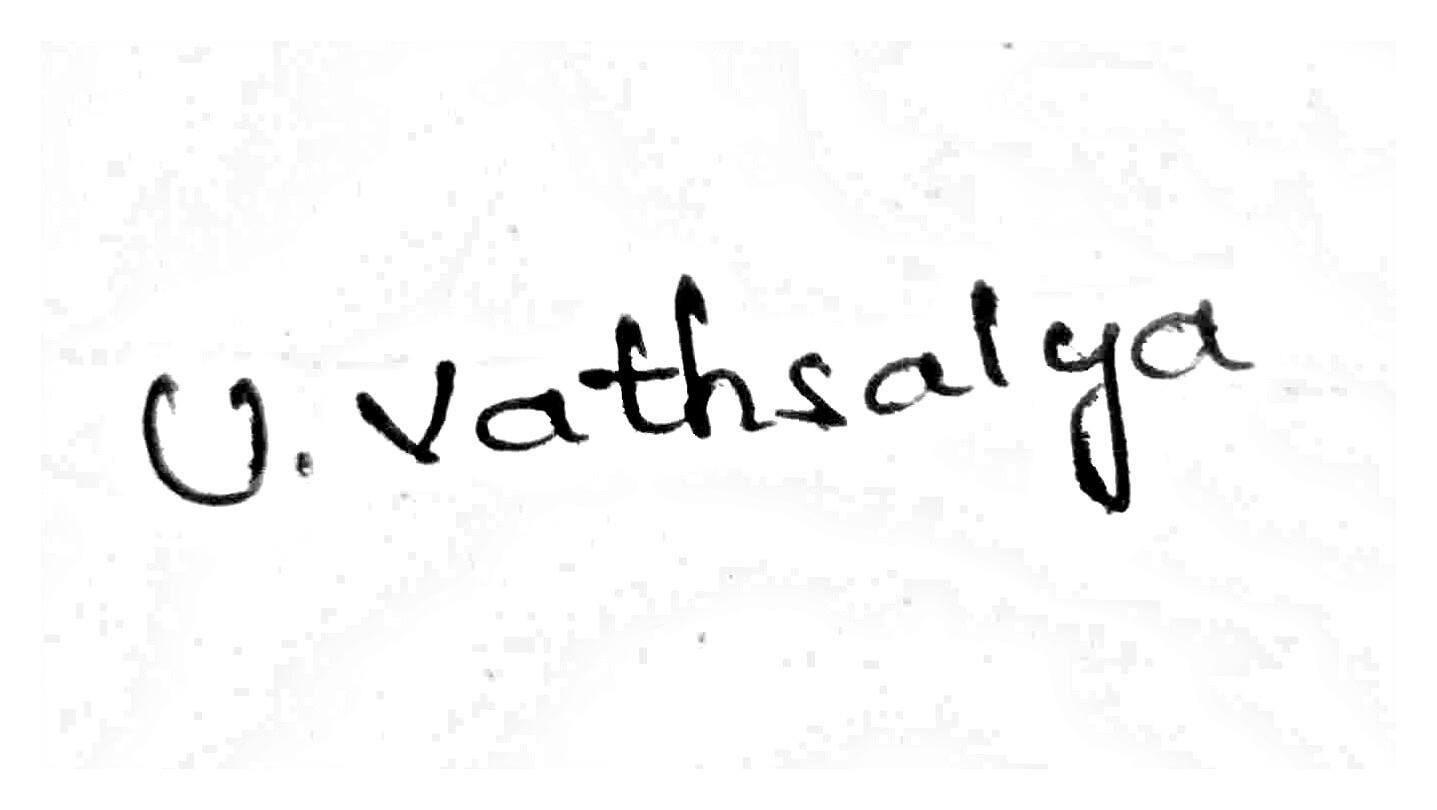 U. Vathsalya